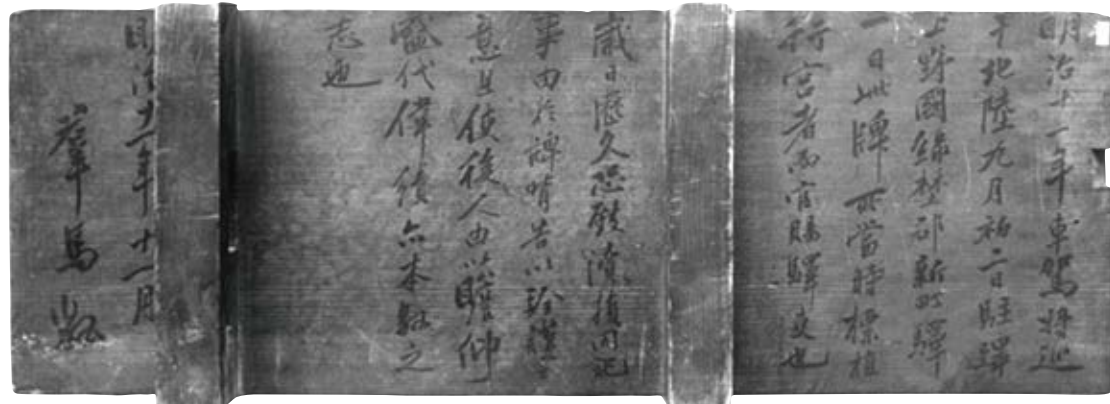 明治十一年車駕将巡
于北陸九月初二日駐
上野國緑埜郡新町驛
一日此牌當時標植
行宮者而官賜驛吏也
歳日歴久恐湮損因記
事由於牌背告以珍護
意且使後人由以瞻仰
盛代偉績亦本縣之
志也
明治十一年十一月
羣馬縣